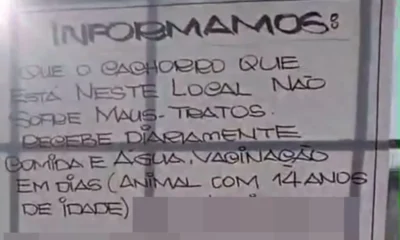 INFORMAMOS:
QUE O CACHORRO QUE
ESTÁ NESTE LOCAL NÃO
SOFRE MAUS-TRATOS.
RECEBE DIARIAMENTE
COMIDA E ÁGUA, VACINAÇÃO
EM DIAS (ANIMAL COM 14 ANOS
DE IDADE)